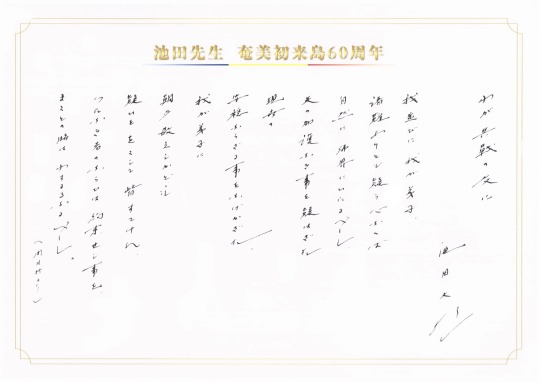 池田先生 奄美初来島60周年
わが共戦の友に
池田大作
我並びに我が弟子
諸難ありとも疑う心なくば
自然に仏界にいたるべし
天の加護なき事を疑はざれ
現世の
安穏ならざる事をなげかざれ
我が弟子に
朝夕教えしかども
疑いををこして皆すてけん
つたなき者のならひは約束せし事を
まことの時はわするるなるべし。
(開目抄より)